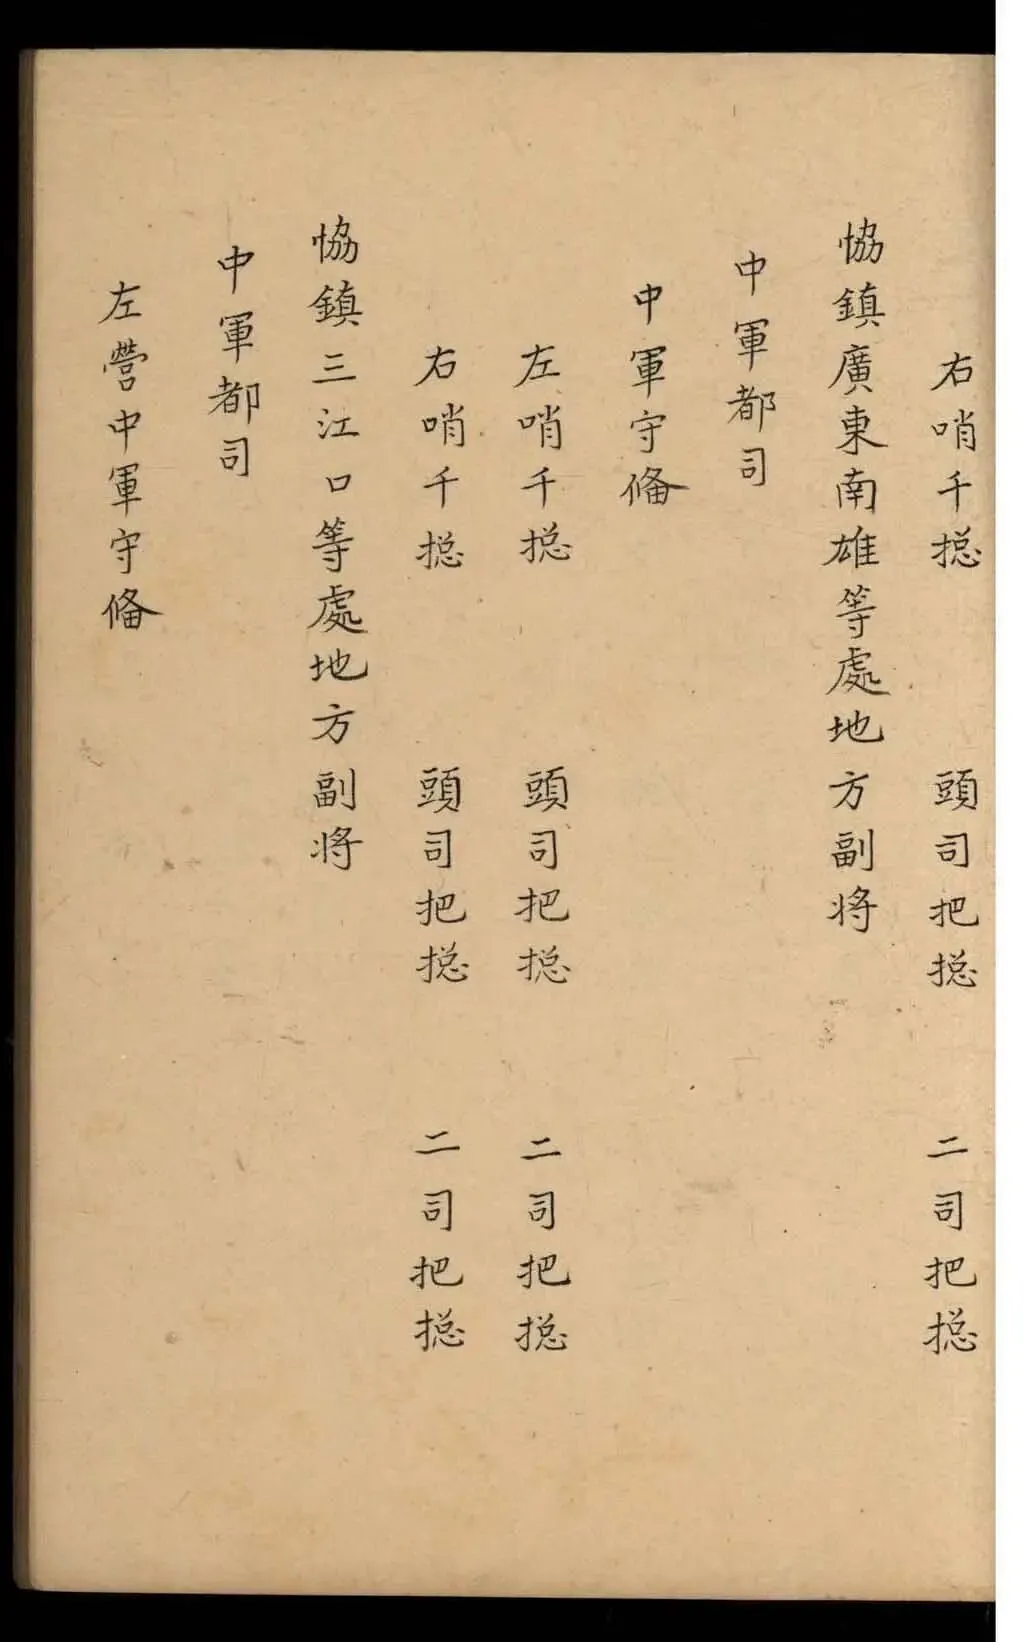 右哨千摠　頭司把摠　二司把摠
恊鎮廣東南雄等處地方副将
中軍都司
中軍守俻
左哨千摠　頭司把摠　二司把摠
右哨千摠　頭司把摠　二司把摠
恊鎮三江口等處地方副将
中軍都司
左營中軍守俻